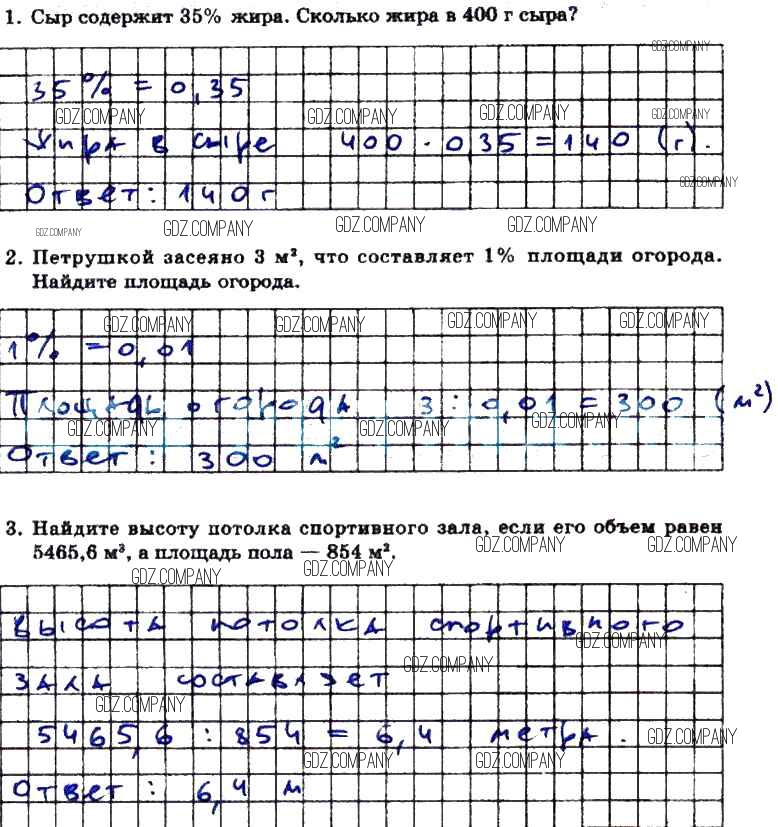 1. Сыр содержит 35% жира. Сколько жира в 400 г сыра?
GDZ.COMPANY
35% = 0,35
GDZ.COMPANY GDZ.COMPANY GDZ.COMPANY GDZ.COMPANY
Жира в сыре 400 · 0,35 = 140 (г).
GDZ.COMPANY
Ответ: 140 г
GDZ.COMPANY GDZ.COMPANY GDZ.COMPANY GDZ.COMPANY
2. Петрушкой засеяно 3 м², что составляет 1% площади огорода.
Найдите площадь огорода.
GDZ.COMPANY GDZ.COMPANY GDZ.COMPANY GDZ.COMPANY
1% = 0,01
Площадь огорода 3 : 0,01 = 300 (м²)
GDZ.COMPANY GDZ.COMPANY GDZ.COMPANY
Ответ : 300 м²
3. Найдите высоту потолка спортивного зала, если его объем равен
5465,6 м³, а площадь пола — 854 м².
GDZ.COMPANY GDZ.COMPANY
GDZ.COMPANY GDZ.COMPANY
Высота потолка спортивного
GDZ.COMPANY
зала составляет
GDZ.COMPANY
GDZ.COMPANY
5465,6 : 854 = 6,4 метра.
GDZ.COMPANY
GDZ.COMPANY GDZ.COMPANY
Ответ : 6,4 м